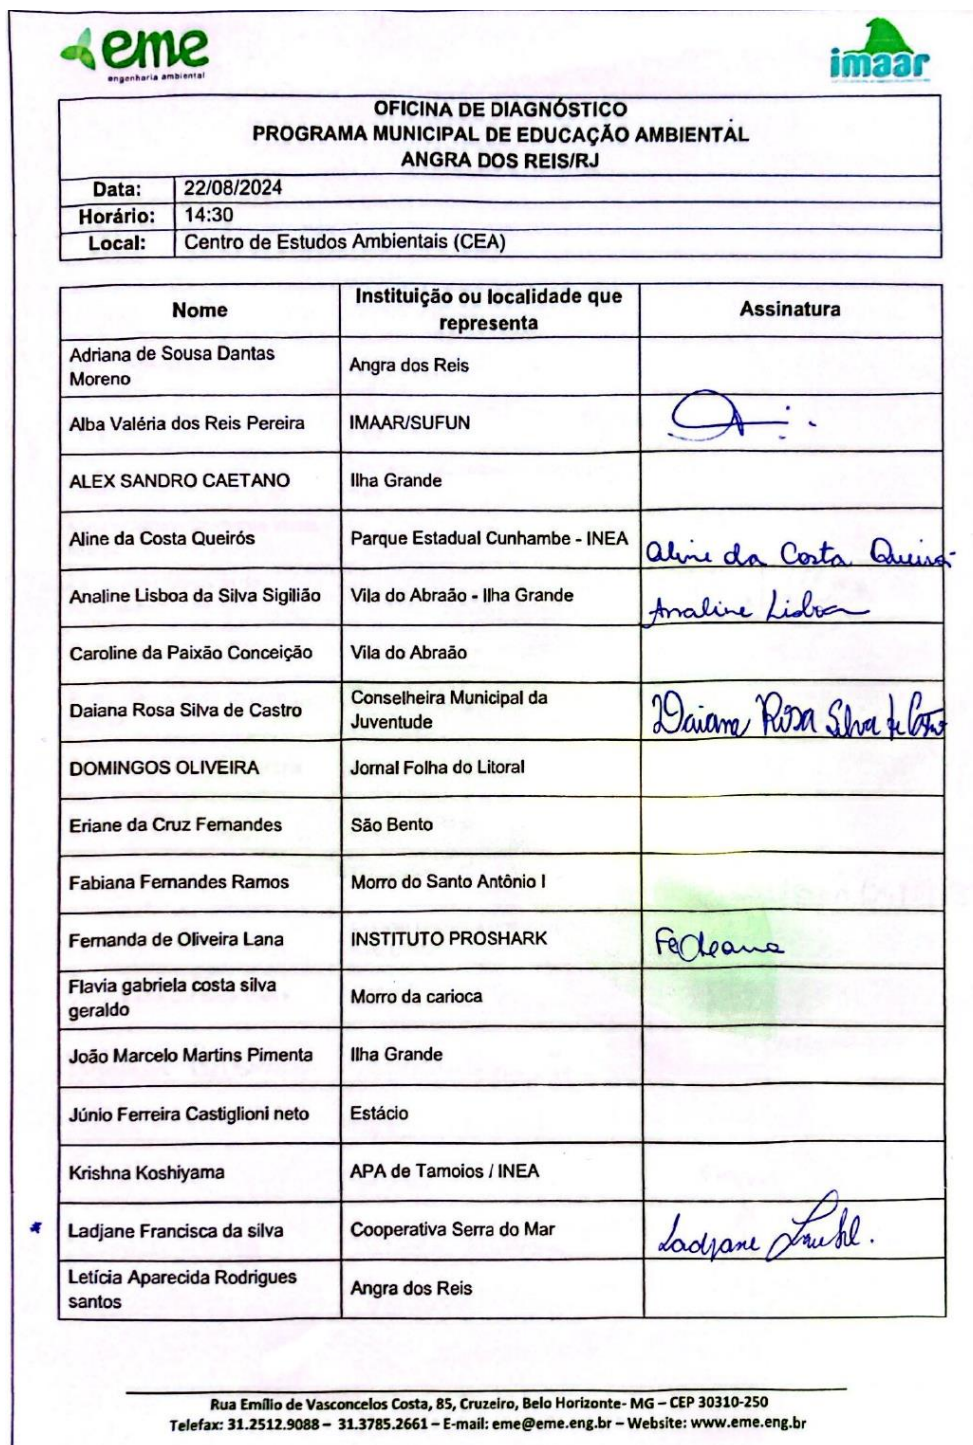 eme
engenharia ambiental
imaar
OFICINA DE DIAGNÓSTICO
PROGRAMA MUNICIPAL DE EDUCAÇÃO AMBIENTAL
ANGRA DOS REIS/RJ
Data: 22/08/2024
Horário: 14:30
Local: Centro de Estudos Ambientais (CEA)
Nome Instituição ou localidade que representa Assinatura
Adriana de Sousa Dantas Moreno Angra dos Reis
Alba Valéria dos Reis Pereira IMAAR/SUFUN
ALEX SANDRO CAETANO Ilha Grande
Aline da Costa Queirós Parque Estadual Cunhambe - INEA Aline da Costa Queirós
Analine Lisboa da Silva Sigilião Vila do Abraão - Ilha Grande Analine Lisboa
Caroline da Paixão Conceição Vila do Abraão
Daiana Rosa Silva de Castro Conselheira Municipal da Juventude Daiana Rosa Silva de Castro
DOMINGOS OLIVEIRA Jornal Folha do Litoral
Eriane da Cruz Fernandes São Bento
Fabiana Fernandes Ramos Morro do Santo Antônio I
Fernanda de Oliveira Lana INSTITUTO PROSHARK
Flavia gabriela costa silva geraldo Morro da carioca
João Marcelo Martins Pimenta Ilha Grande
Júnio Ferreira Castiglioni neto Estácio
Krishna Koshiyama APA de Tamoios / INEA
Ladjane Francisca da silva Cooperativa Serra do Mar Ladjane
Letícia Aparecida Rodrigues santos Angra dos Reis
Rua Emílio de Vasconcelos Costa, 85, Cruzeiro, Belo Horizonte- MG – CEP 30310-250
Telefax: 31.2512.9088 – 31.3785.2661 – E-mail: eme@eme.eng.br – Website: www.eme.eng.br